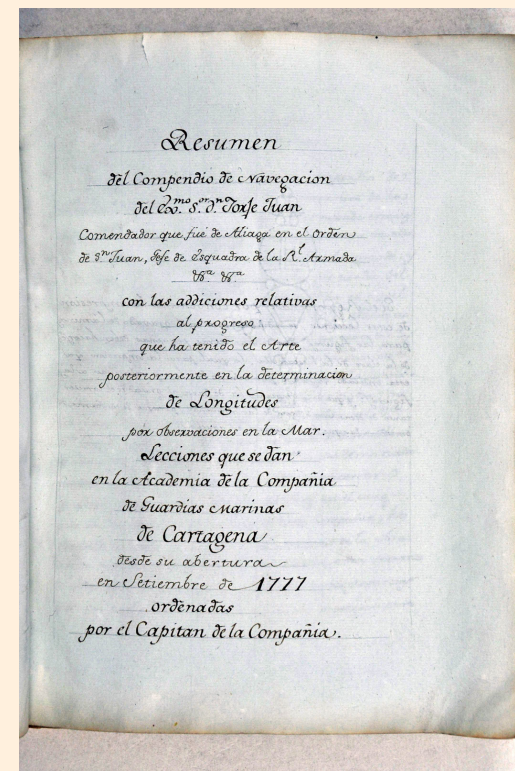 Resumen
del Compendio de Navegacion
del Exc.mo S.or D.n Jorje Juan
Comendador que fué de Aliaga en el Orden
de S.n Juan, Jefe de Esquadra de la R.l Armada
&.a &.a
con las addiciones relativas
al progreso
que ha tenido el Arte
posteriormente en la determinacion
de Longitudes
por observaciones en la Mar.
Lecciones que se dan
en la Academia de la Compañia
de Guardias Marinas
de Cartagena
desde su abertura
en Setiembre de 1777
ordenadas
por el Capitan de la Compañia.